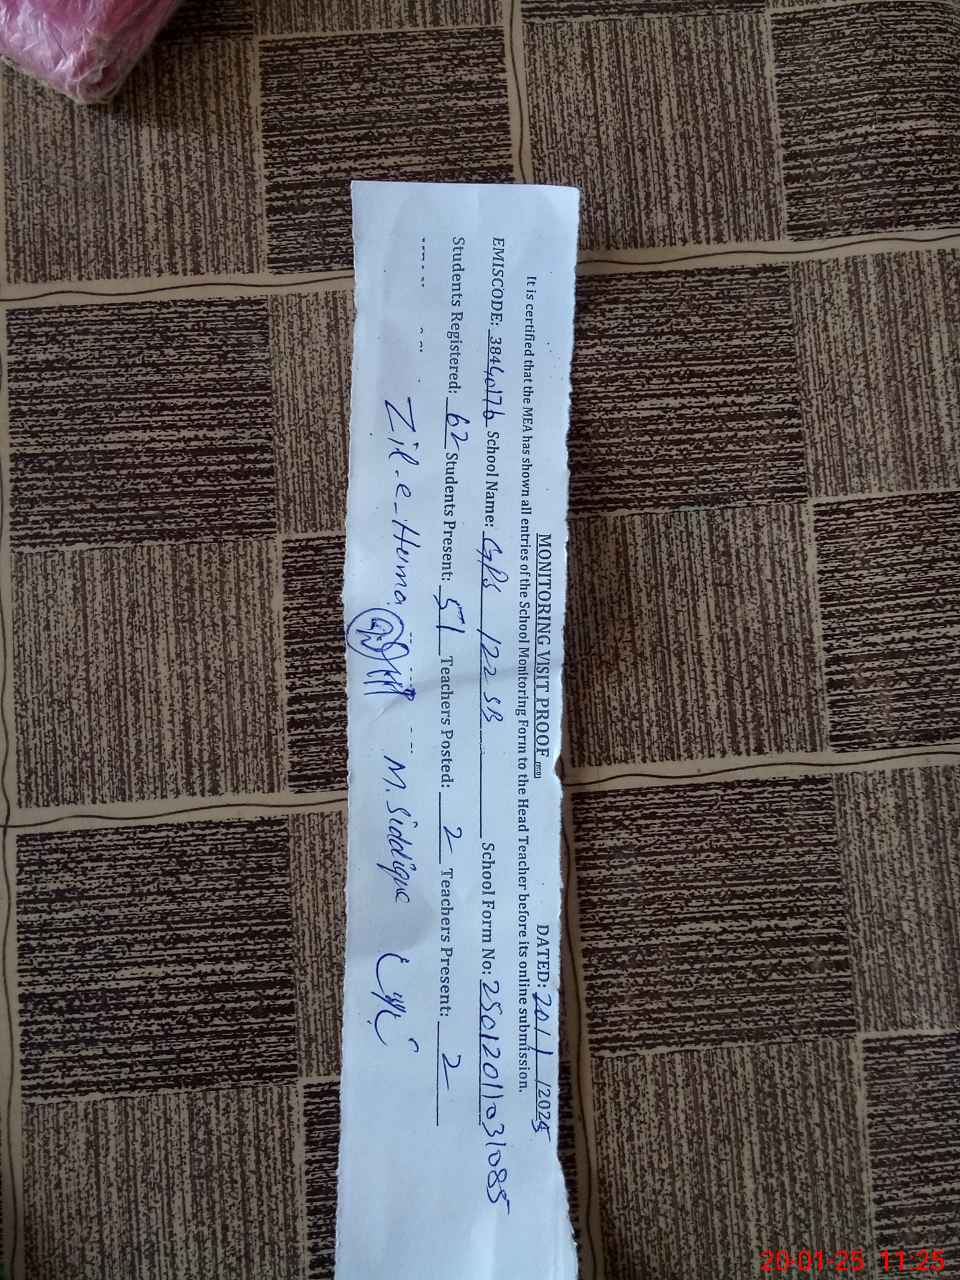 MONITORING VISIT PROOF DATED: 20/1/2025
It is certified that the MEA has shown all entries of the School Monitoring Form to the Head Teacher before its online submission.
EMISCODE: 38440176 School Name: GPS 122 SB School Form No: 25012011031085
Students Registered: 62 Students Present: 51 Teachers Posted: 2 Teachers Present: 2
Zil-e-Huma M. Siddique
20-01-25 11:25